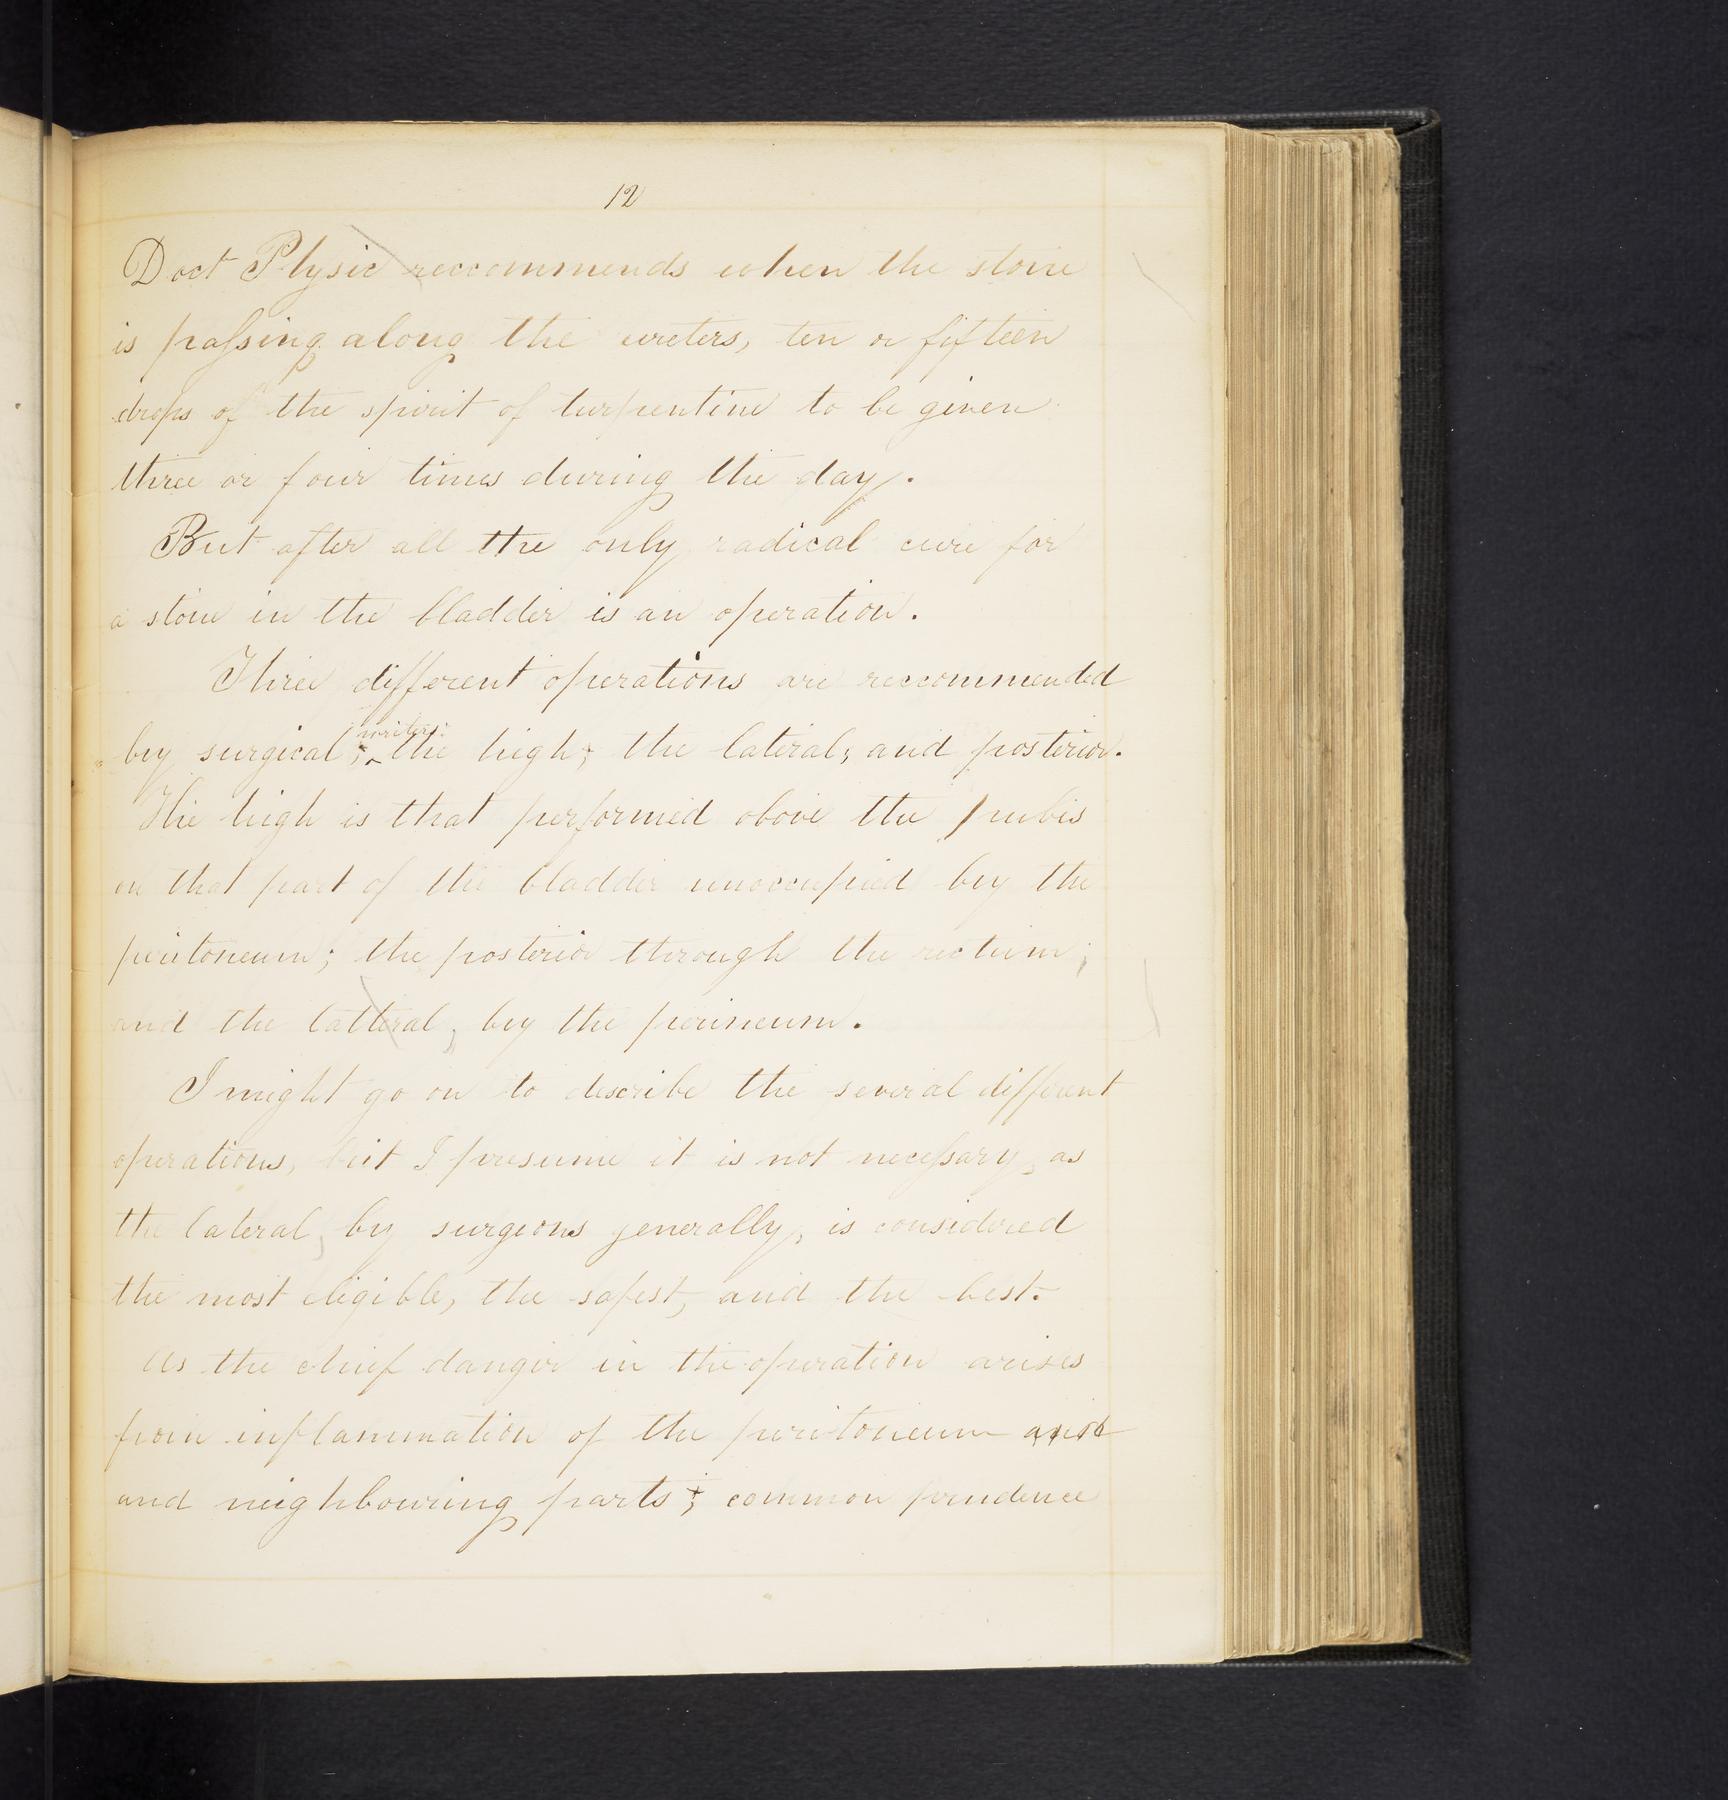 12
Doct Physic reccommends when the stone
is passing along the ureters, ten or fifteen
drops of the spirit of turpentine to be given
three or four times during the day.
But after all the only radical cure for
a stone in the bladder is an operation.
Three different operations are reccommended
by surgical; writers: the high; the lateral; and posterior.
The high is that performed above the pubis
on that part of the bladder unoccupied by the
peritoneum; the posterior through the rectum;
and the latteral, by the perineum.
I might go on to describe the several different
operations, but I presume it is not necessary, as
the lateral, by surgeons generally, is considered
the most eligible, the safest, and the best.
As the chief danger in the operation arises
from inflammation of the peritoneum and
and neighbouring parts; common prudence